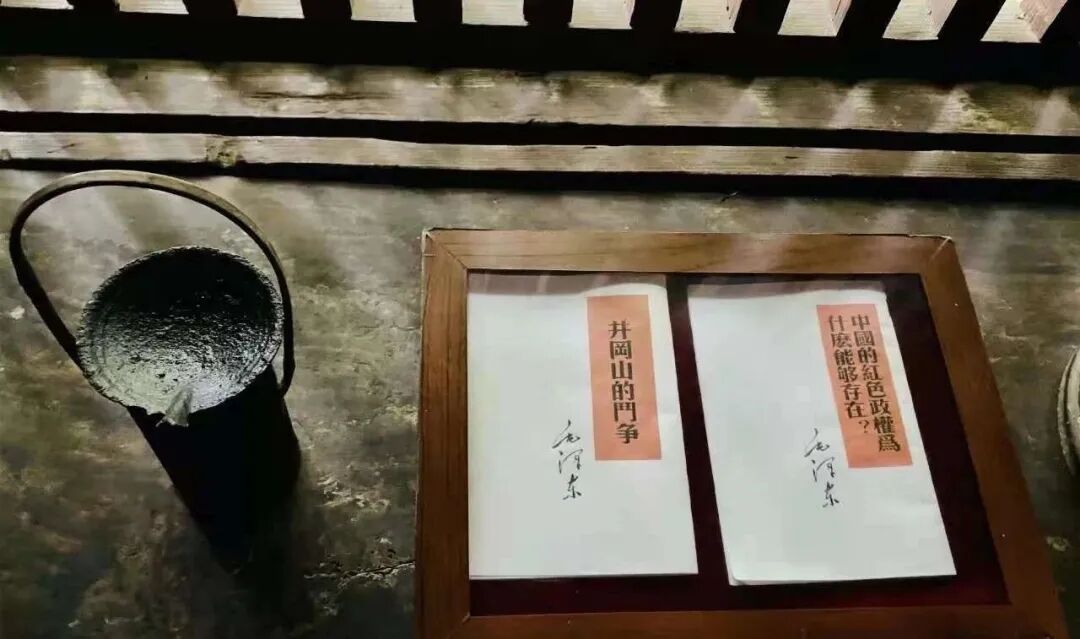 井岡山的鬥争
毛澤东
中國的紅色政權爲
什麽能够存在？
毛澤东